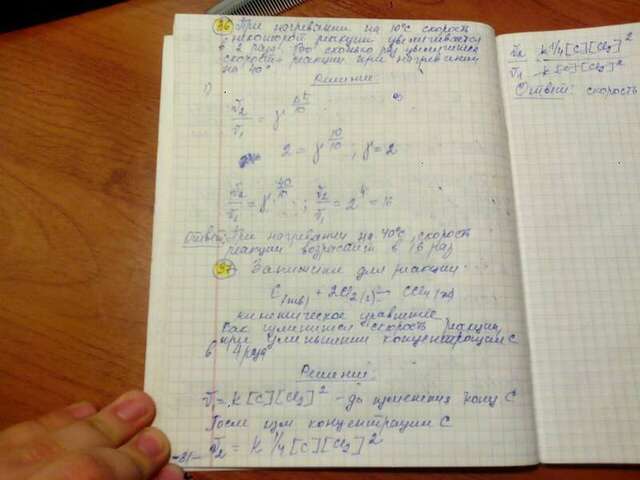 36 При нагревании на 10°C скорость
некоторой реакции увеличивается
в 2 раза. Во сколько раз увеличится
скорость реакции при нагревании
на 40°
Решение:
1)
v₂/v₁ = γ^(Δt/10)
2 = γ^(10/10) ; γ = 2
v₂/v₁ = γ^(40/10) ; v₂/v₁ = 2⁴ = 16
Ответ: При нагревании на 40°C, скорость
реакции возрастает в 16 раз
37 Запишите для реакции:
C(тв) + 2Cl₂(г) = CCl₄(ж)
кинетическое уравнение
Как изменится скорость реакции
при уменьшении концентрации C
в 4 раза
Решение:
v₁ = k[C][Cl₂]² - до изменения конц C
После изм концентрации C
v₂ = k ¼[C][Cl₂]²
-31-
v₂/v₁ = k ¼[C][Cl₂]² / k[C][Cl₂]²
Ответ: скорость